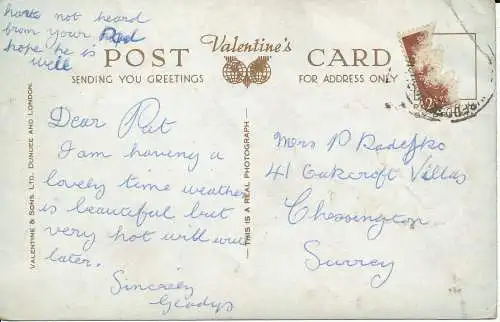 have not heard
from your Dad
hope he is
well
POST Valentine's CARD
SENDING YOU GREETINGS FOR ADDRESS ONLY
VALENTINE & SONS. LTD. DUNDEE AND LONDON.
THIS IS A REAL PHOTOGRAPH
Dear Pat
I am having a
lovely time weather
is beautiful but
very hot will write
later.
Sincerely
Gladys
Mrs P Radefko
41 Oakcroft Villas
Chessington
Surrey